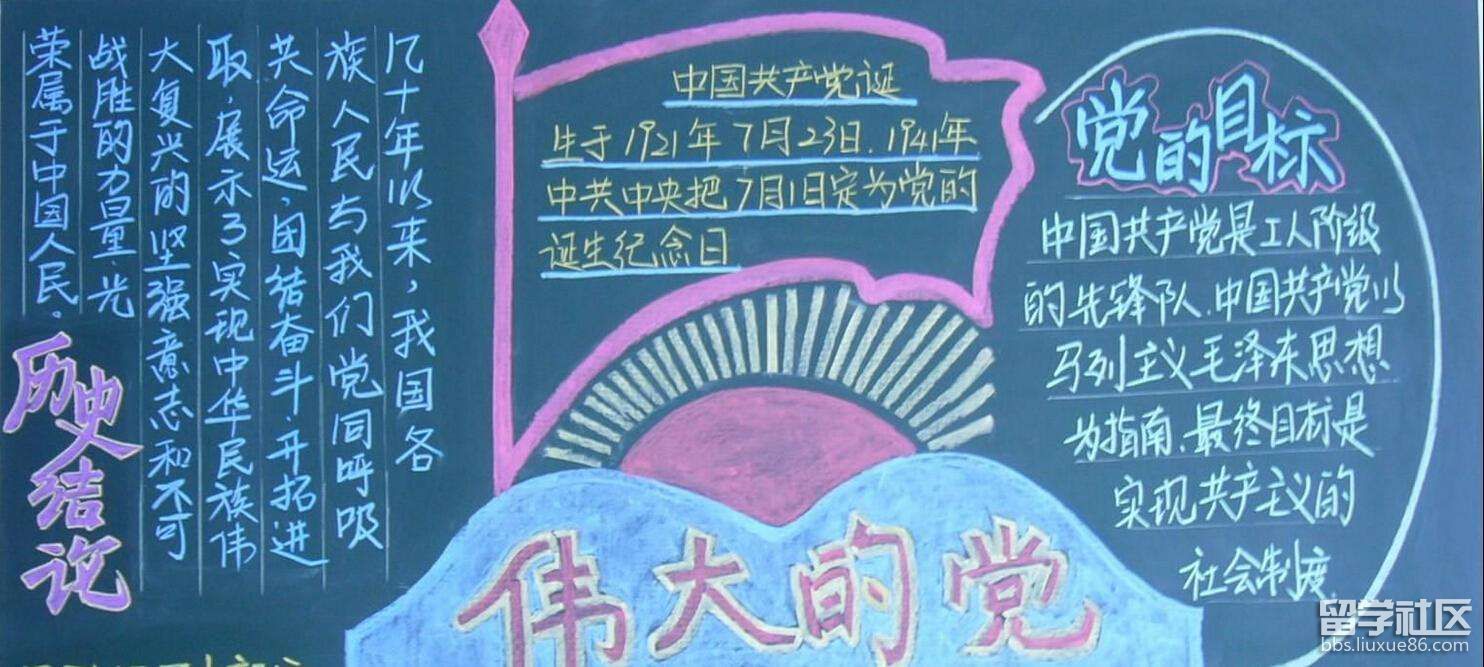 历史结论
几十年以来,我国各
族人民与我们党同呼吸
共命运,团结奋斗.开拓进
取.展示了实现中华民族伟
大复兴的坚强意志和不可
战胜的力量.光
荣属于中国人民.
中国共产党诞
生于1921年7月23日.1941年
中共中央把7月1日定为党的
诞生纪念日
伟大的党
党的目标
中国共产党是工人阶级
的先锋队.中国共产党以
马列主义毛泽东思想
为指南.最终目标是
实现共产主义的
社会制度.
留学社区
bbs.liuxue86.com